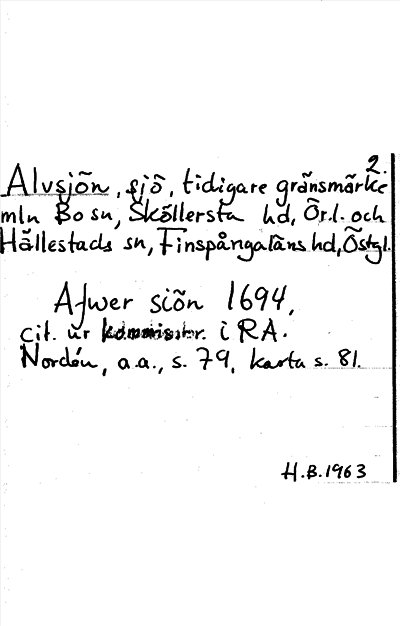 2.
Alvsjön, sjö, tidigare gränsmärke
mln Bo sn, Sköllersta hd, Ör.l. och
Hällestads sn, Finspångaläns hd, Östgl.
Afwer siön 1694,
cit. ur i RA.
Nordén, a.a., s. 79, karta s. 81.
H.B. 1963